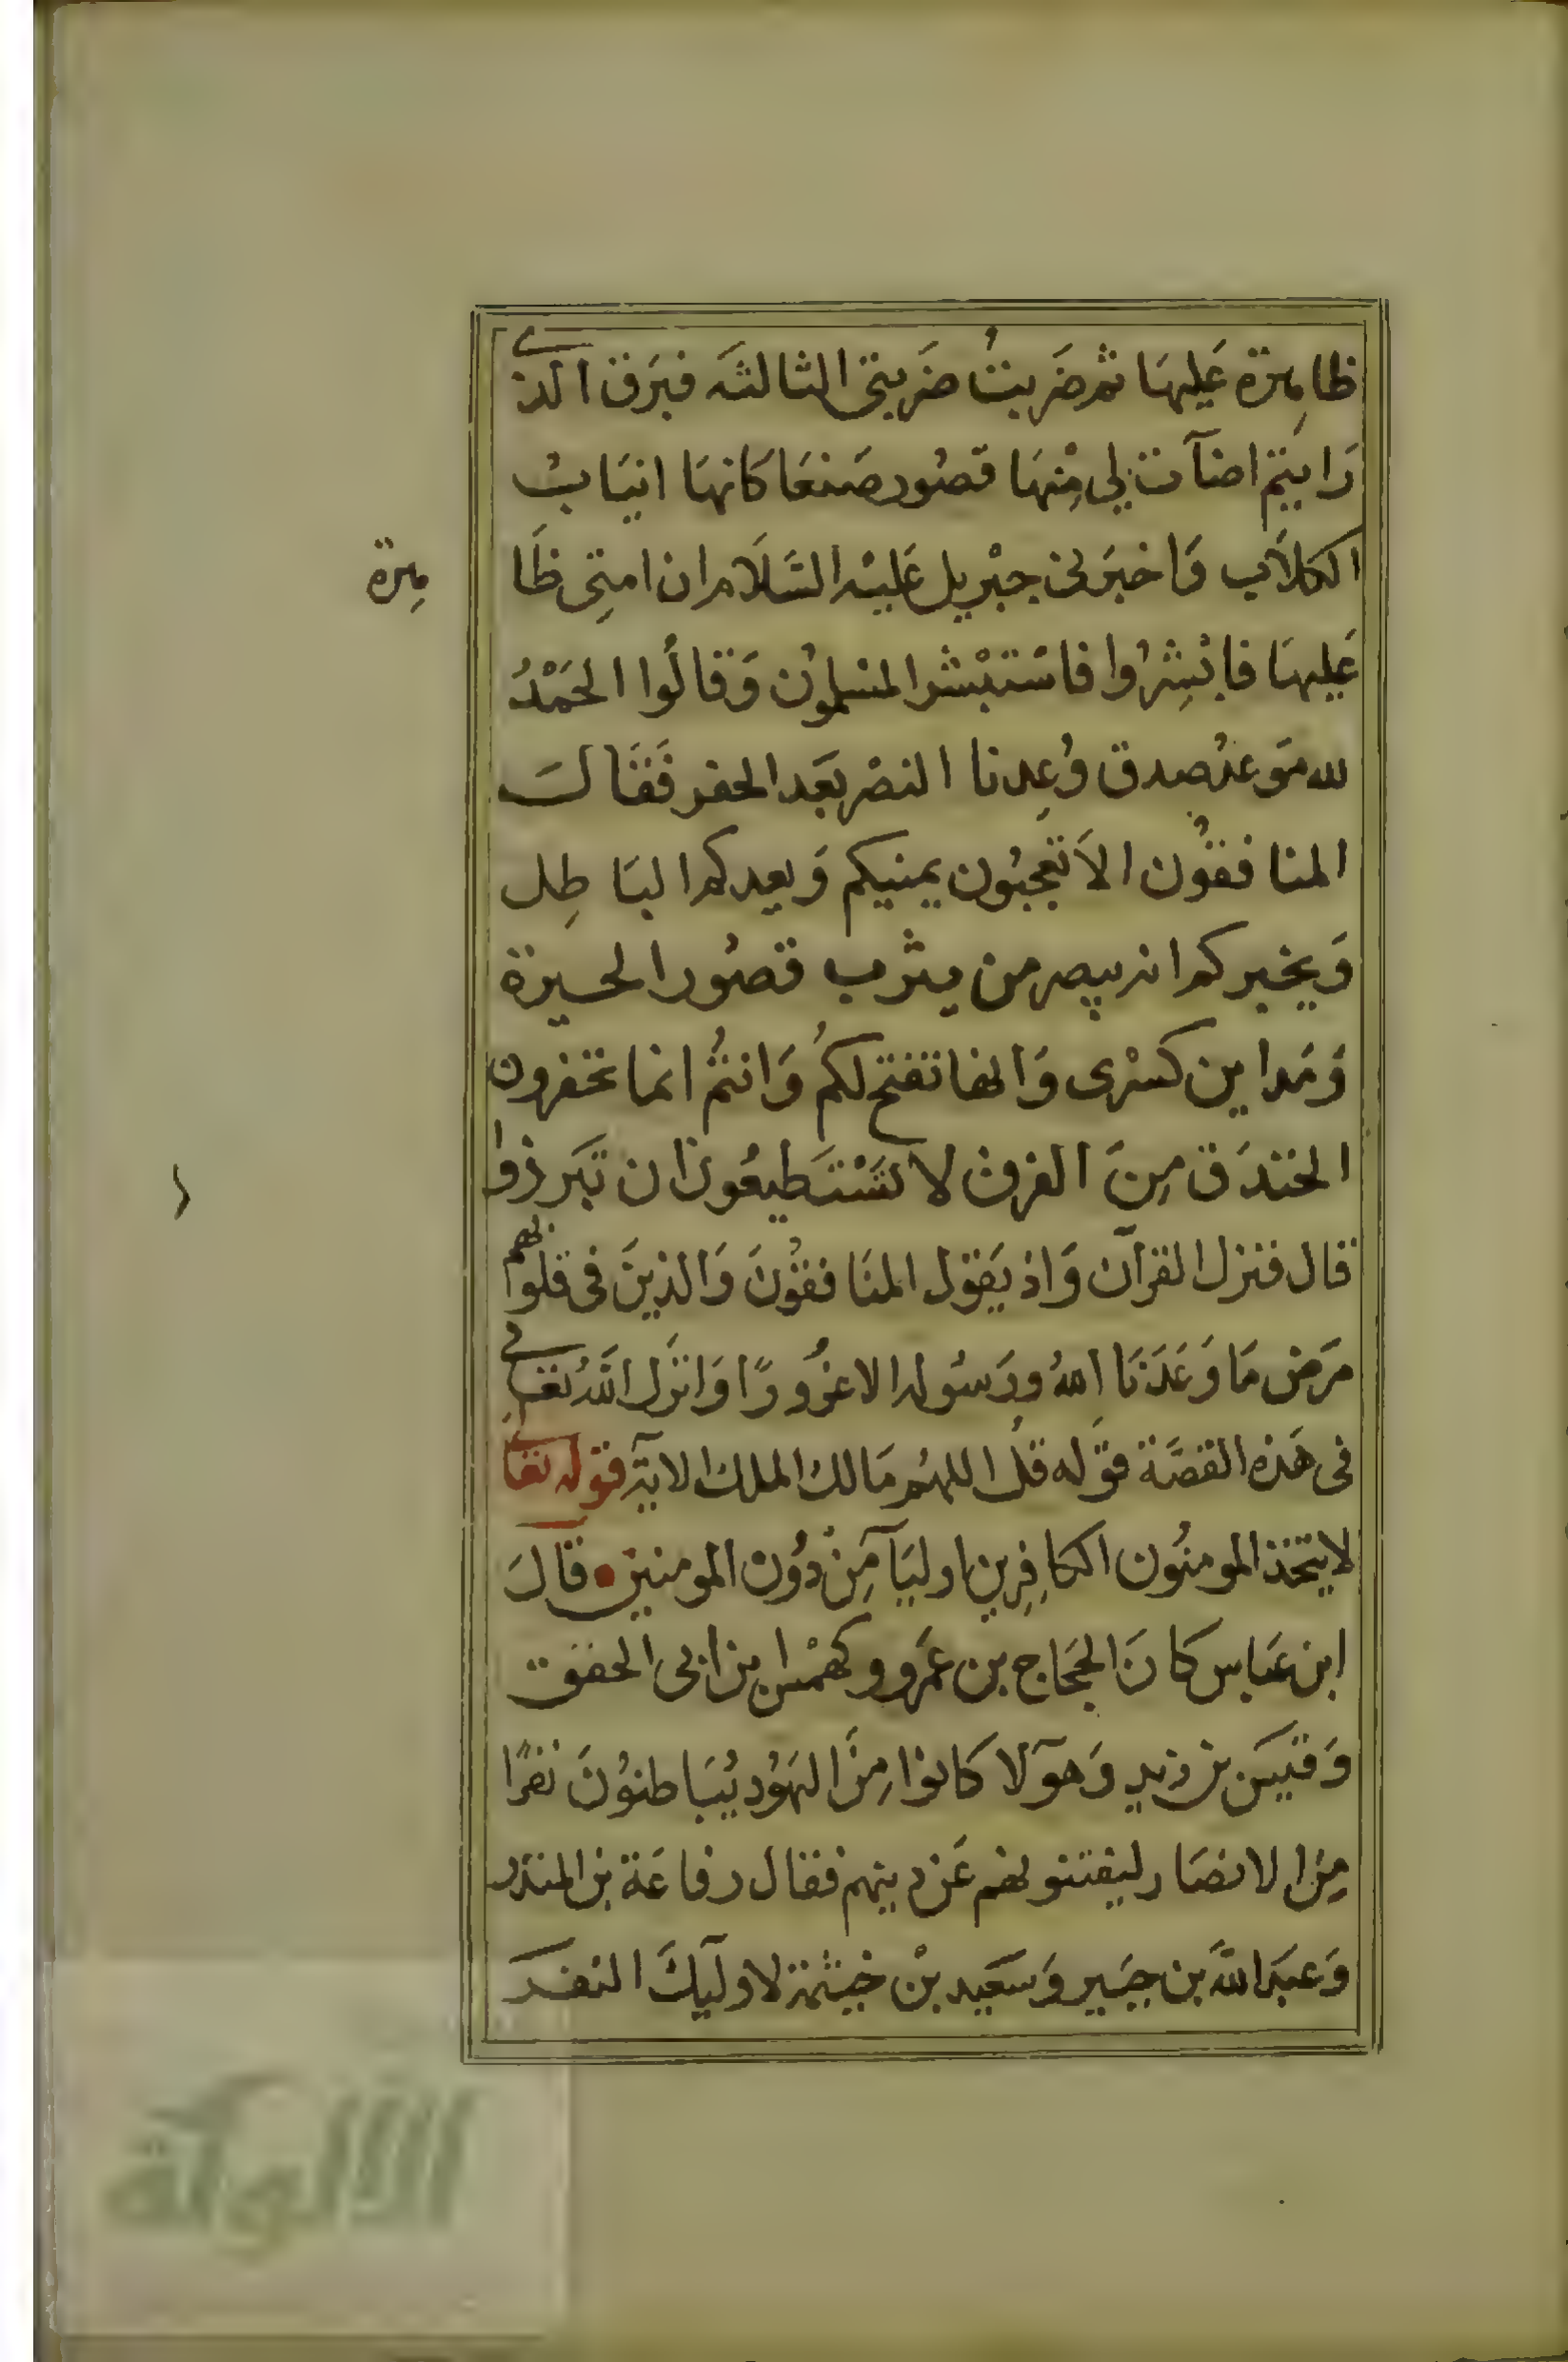 ظاهرة عَليهَا ثم ضَربتُ ضَربتى الثالثه فبَرق الذى
رَايتم اضآت لى مِنْهَا قصُور صَنعَا كَانهَا انيَابُ
الكلاَب وَاخبَرنى جبْريل عَليْه السَّلَام ان امتِى ظَا
هرة
عَليهَا فابْشِرُوا فاسْتبْشر المسْلموُن وَقالُوا الحَمْدُ
لله مَوعدُ صدق وُعِدنا النصْر بَعَد الحفر فَقَالَ
المنافقوُن الاَ تعجبُون يمنيكم وَيعِدكم البَاطِل
وَيخبركم انه يبصر من يثرب قصُور الحيرة
وَمَداين كسْرى وَانها تفتح لكمُ وَانتمُ انما تحفرون
الخندَق مِنَ الفرق لا تسْتَطيعُون ان تبَرزوا
قال فنزل القرآن وَاذ يَقول المنَافقوُنَ وَالذينَ فى قلوبهم
مرَض مَا وَعَدَنَا اللهُ وَرَسُوله الا غرُورًا وَانزَل اللهُ تعَالى
فى هَذه القصَّة قوَله قل اللهُم مَالك الملك الاية قوله تعَالى
لا يتخذ المومنُون الكافِرِين اوليَآ مِنْ دُون المومنين قالَ
ابن عَباس كانَ الحجَاج بن عَمرو وكهمْس بن ابى الحقق
وَقيس بن زيد وَهوَلا كانوا مِنَ اليَهوُد يُبَاطنوُنَ نفرًا
مِنَ الانصَار ليفتنونهم عَن دينهم فقال رفاعَة بن المنذر
وَعَبدالله بن جبَير وَسَعَيد بنْ خيثمة لاوليَك النفر
الألوكة